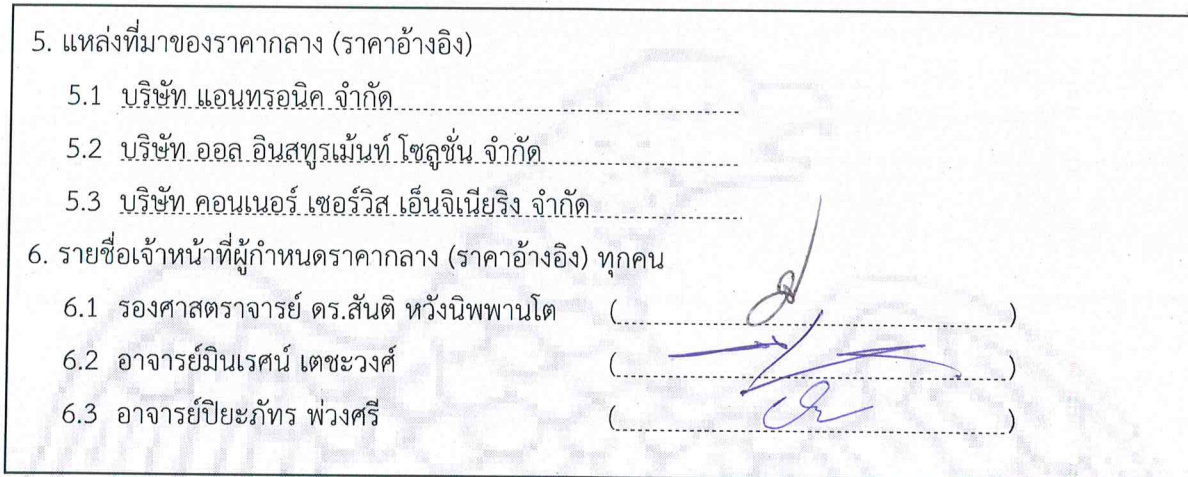 5. แหล่งที่มาของราคากลาง (ราคาอ้างอิง)
5.1 บริษัท แอนทรอนิค จำกัด
5.2 บริษัท ออล อินสทูรเม้นท์ โซลูชั่น จำกัด
5.3 บริษัท คอนเนอร์ เซอร์วิส เอ็นจิเนียริง จำกัด
6. รายชื่อเจ้าหน้าที่ผู้กำหนดราคากลาง (ราคาอ้างอิง) ทุกคน
6.1 รองศาสตราจารย์ ดร.สันติ หวังนิพพานโต (....................)
6.2 อาจารย์มินเรศน์ เตชะวงศ์ (....................)
6.3 อาจารย์ปิยะภัทร พ่วงศรี (....................)